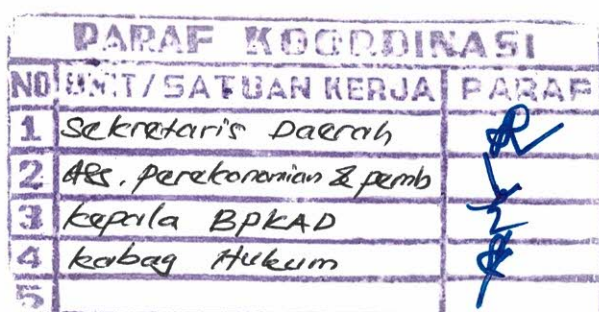 PARAF KOORDINASI
NO UNIT/SATUAN KERJA PARAF
1 Sekretaris Daerah
2 Ass. Perekonomian & pemb
3 kepala BPKAD
4 kabag Hukum
5